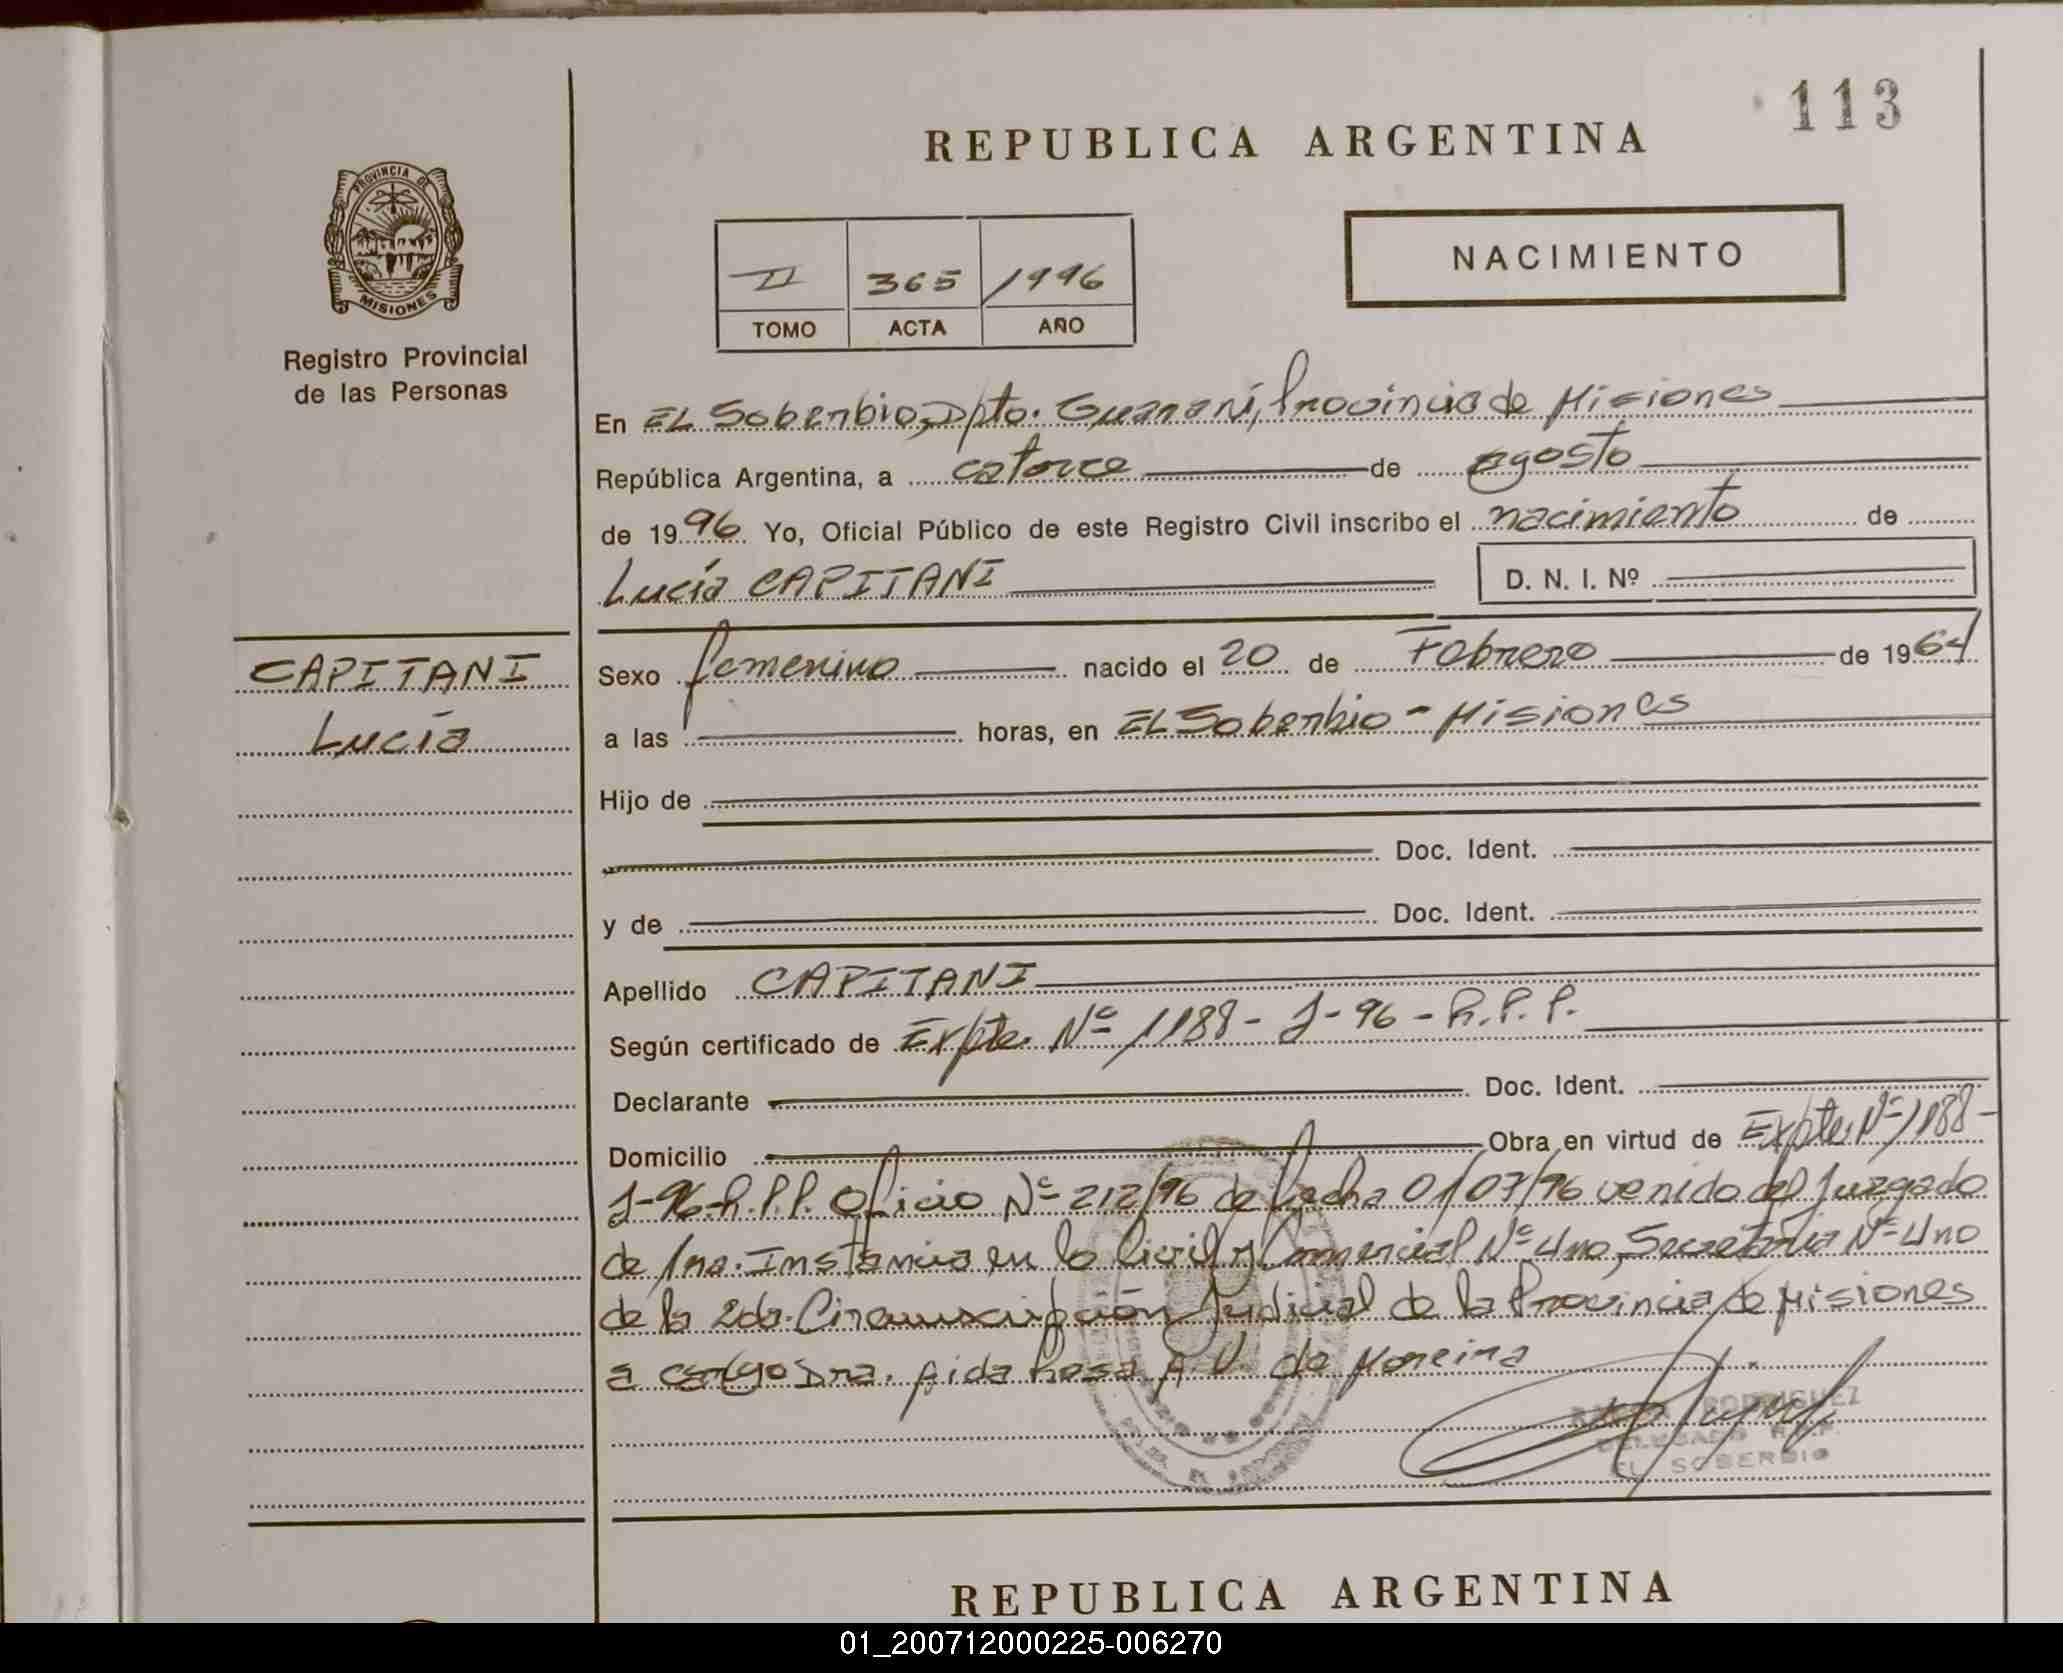 113
REPUBLICA ARGENTINA
PROVINCIA DE
MISIONES
Registro Provincial
de las Personas
NACIMIENTO
II 365 1996
TOMO ACTA AÑO
En EL Soberbio, Dpto. Guaraní, Provincia de Misiones
República Argentina, a catorce de agosto
de 1996 Yo, Oficial Público de este Registro Civil inscribo el nacimiento de
Lucía CAPITANI D. N. I. Nº
CAPITANI
Lucía
Sexo femenino nacido el 20 de Febrero de 1964
a las horas, en EL Soberbio - Misiones
Hijo de
Doc. Ident.
y de Doc. Ident.
Apellido CAPITANI
Según certificado de Expte. Nº 1188 - J - 96 - R.P.P.
Declarante Doc. Ident.
Domicilio Obra en virtud de Expte. Nº 1188 -
J-96-R.P.P. Oficio Nº 212/96 de fecha 01/07/96 venido del Juzgado
de 1ra. Instancia en lo Civil y Comercial Nº Uno, Secretaria Nº Uno
de la 2da. Circunscripción Judicial de la Provincia de Misiones
a cargo Dra. Aida Rosa A. V. de Moreira
RODRIGUEZ
DELEGADO R.P.P.
EL SOBERBIO
REPUBLICA ARGENTINA
01_200712000225-006270